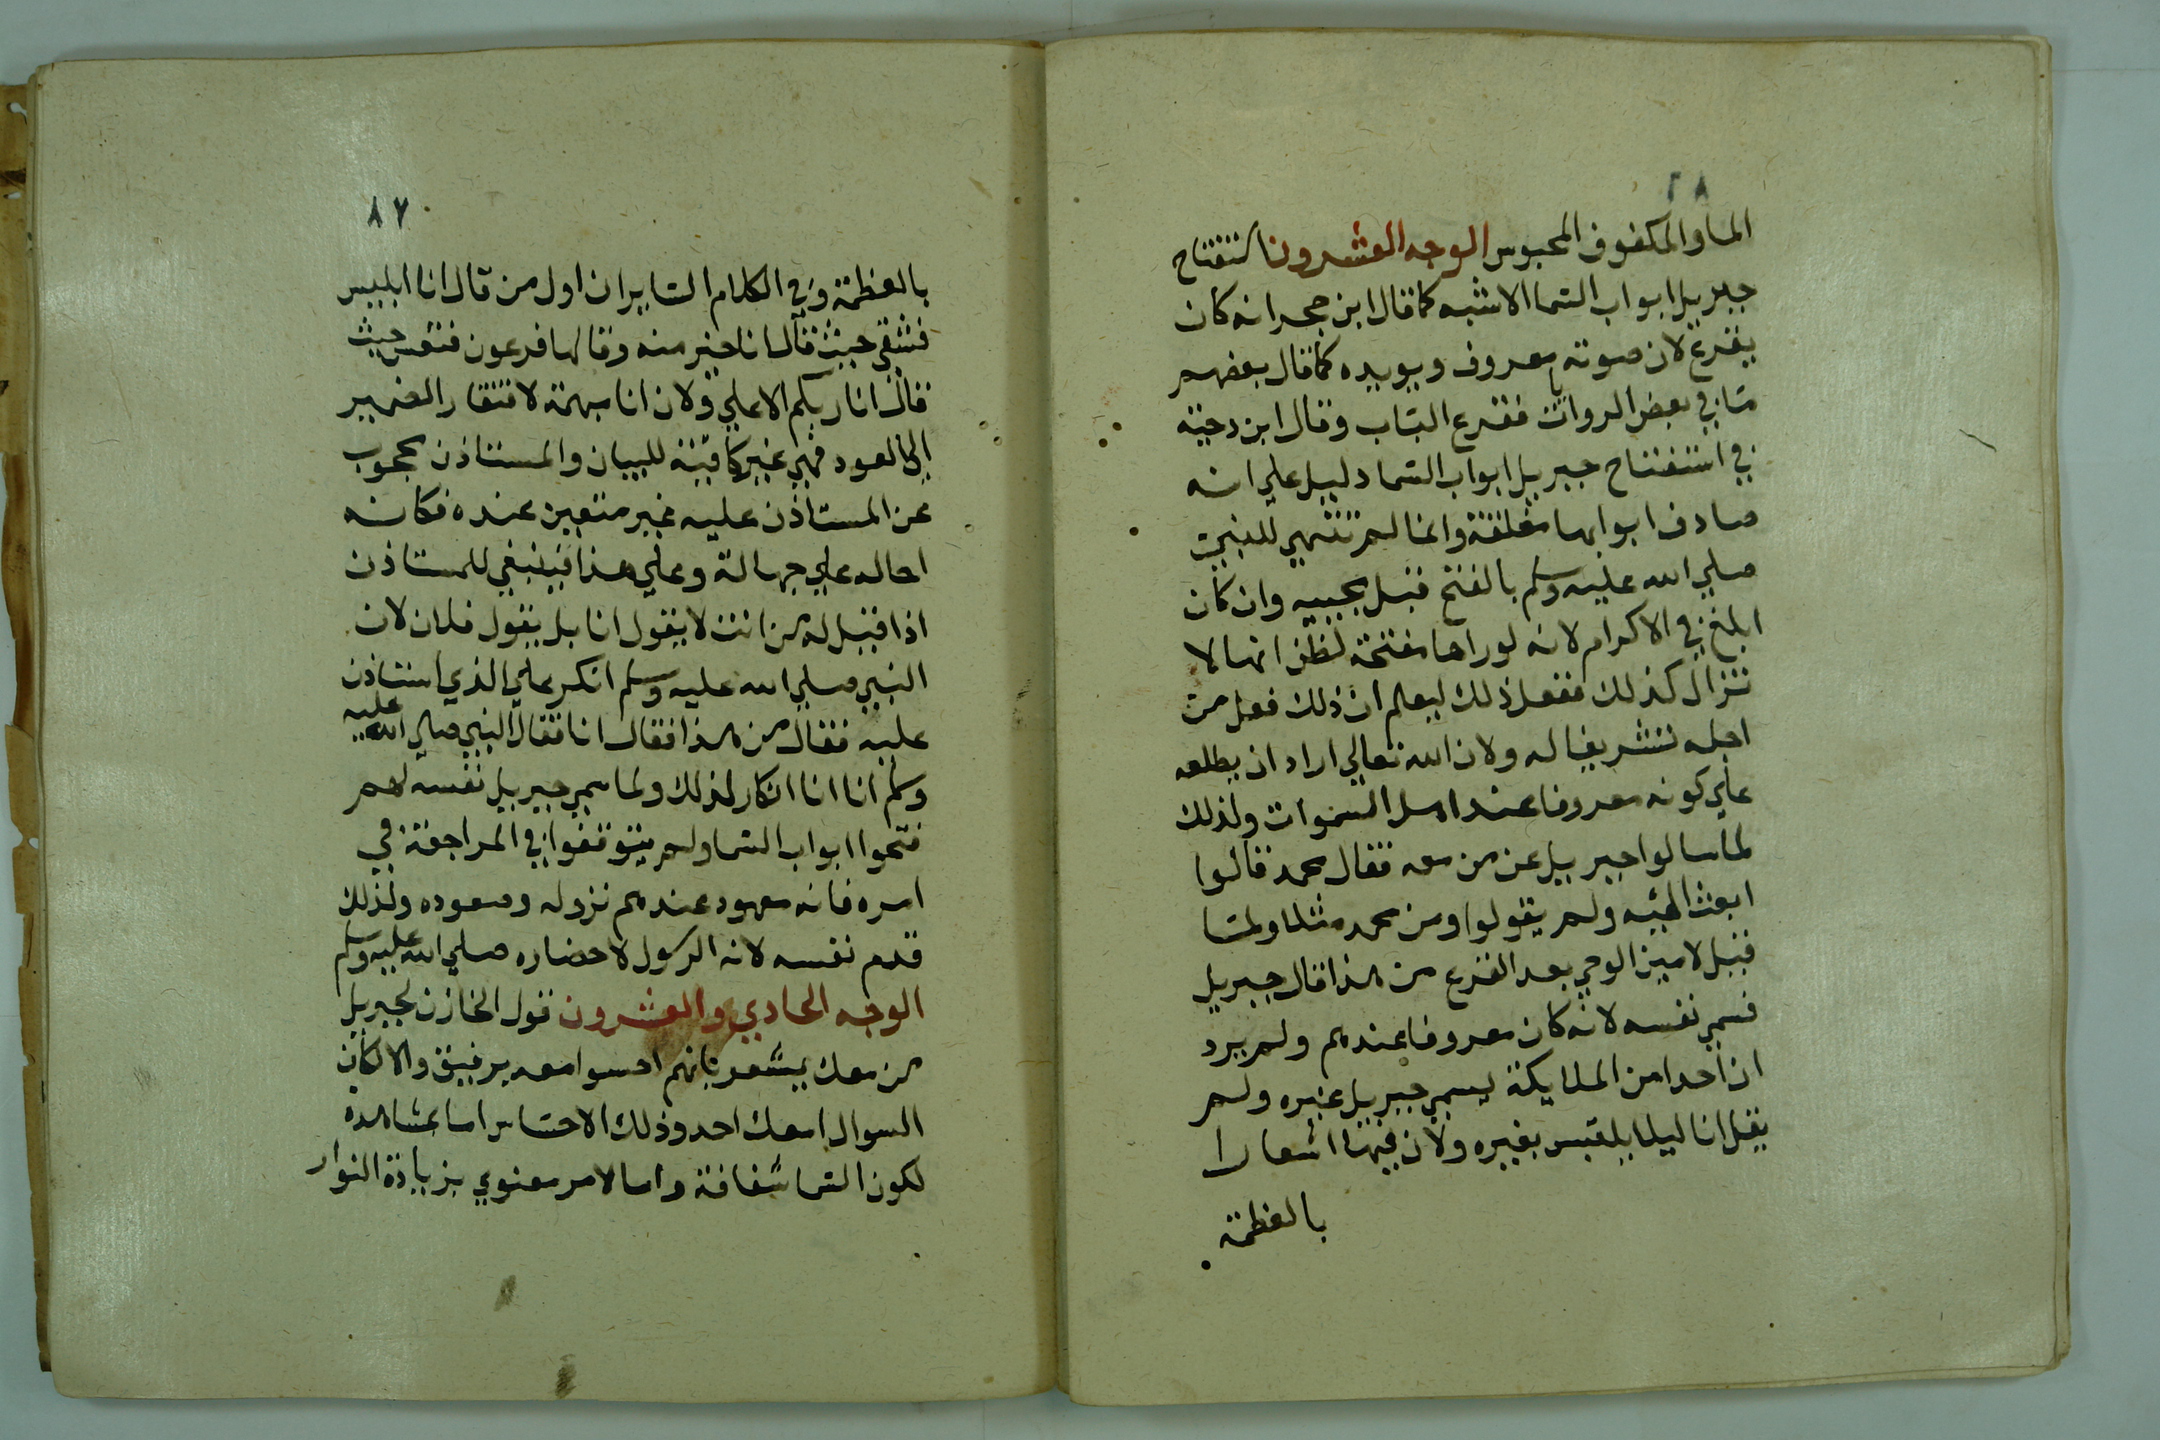 ٨٦
الماء والمكفوف المحبوس الوجه العشرون استفتاح
جبريل ابواب السما الاشبه كما قال ابن حجر انه كان
يقرع لان صوته معروف ويويده كما قال بعضهم
ما في بعض الروايات فقرع الباب وقال ابن دحية
في استفتاح جبريل ابواب السما دليل علي انه
صادف ابوابها مغلقة وانما لم تتهي للنبي
صلي الله عليه وسلم بالفتح قبل مجييه وان كان
ابلغ في الاكرام لانه لو راها مفتحة لظن انها لا
تزال كذلك ففعل ذلك ليعلم ان ذلك فعل من
اجله تشريفا له ولان الله تعالي اراد ان يطلعه
علي كونه معروفا عند اهل السموات ولذلك
لما سالوا جبريل عن من معه فقال محمد قالوا
ابعث اليه ولم يقولوا ومن محمد مثلا ولما
قيل لامين الوحي بعد القرع من هذا قال جبريل
فسمي نفسه لانه كان معروفا عندهم ولم يرد
ان احدا من الملايكة يسمي جبريل غيره ولم
يقل انا ليلا يلتبس بغيره ولان فيها اشعارا
بالعظمة
٨٧
بالعظمة وفي الكلام الساير ان اول من قال انا ابليس
فشقي حيث قال انا خير منه وقالها فرعون فتعس حيث
قال انا ربكم الاعلي ولان انا مبهمة لافتقار الضمير
الي العود فهي غير كافية للبيان والمستاذن محجوب
عن المستاذن عليه غير متعين عنده فكانه
احاله علي جهالة وعلي هذا فينبغي للمستاذن
اذا قيل له من انت لا يقول انا بل يقول فلان لان
النبي صلي الله عليه وسلم انكر علي الذي استاذن
عليه فقال من هذا فقال انا فقال النبي صلي الله عليه
وسلم انا انا انكار لذلك ولما سمي جبريل نفسه لهم
فتحوا ابواب السما ولم يتوقفوا في المراجعة في
امره فانه معهود عندهم نزوله وصعوده ولذلك
قدم نفسه لانه الرسول لاحضاره صلي الله عليه وسلم
الوجه الحادي والعشرون قول الخازن لجبريل
من معك يشعر بانهم احسوا معه برفيق والا لكان
السوال امعك احد وذلك الاحساس اما بمشاهدة
لكون السما شفافة واما لامر معنوي بزيادة النوار